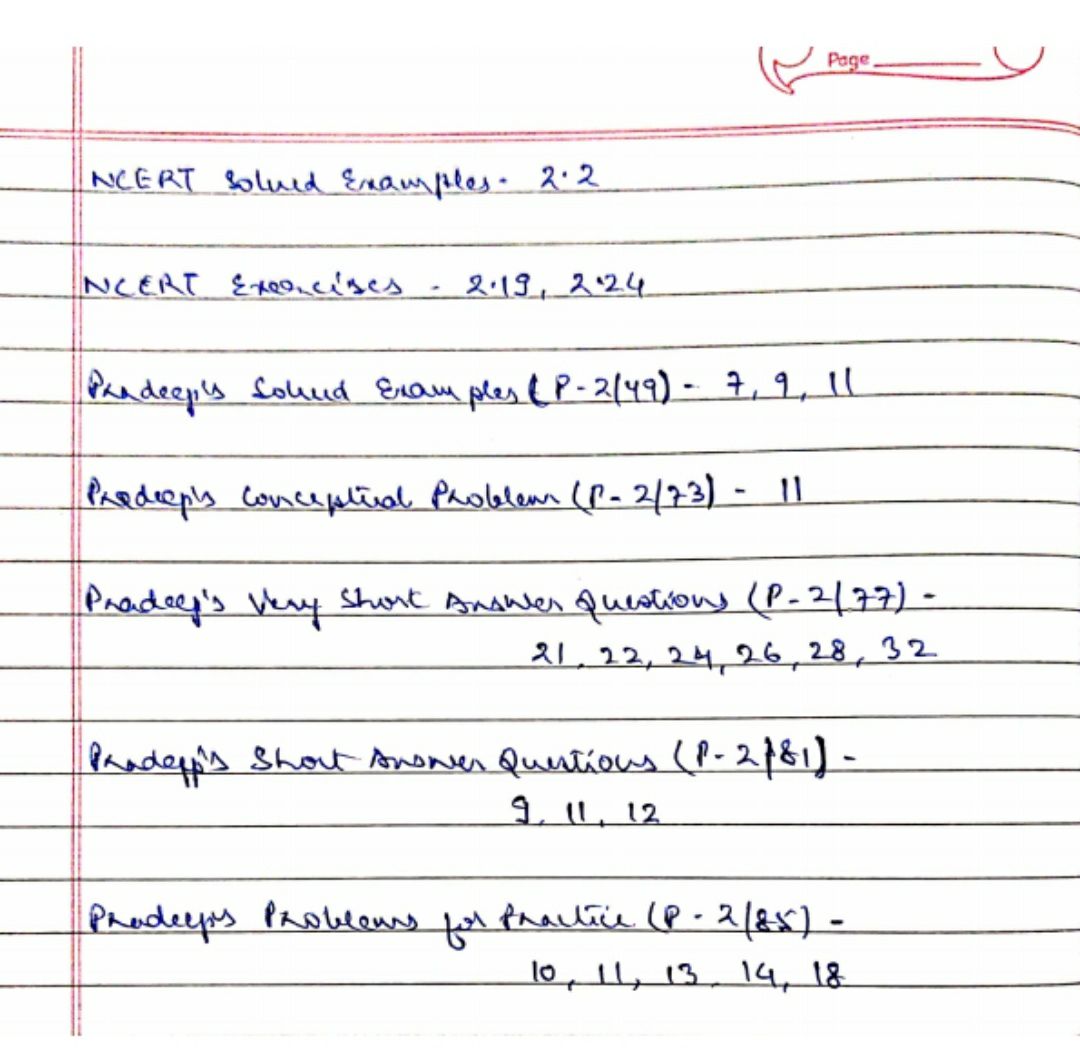 Page
NCERT Solved Examples - 2.2
NCERT Exercises - 2.19, 2.24
Pradeep's Solved Examples (P-2/49) - 7, 9, 11
Pradeep's Conceptual Problem (P-2/73) - 11
Pradeep's Very Short Answer Questions (P-2/77) -
21, 22, 24, 26, 28, 32
Pradeep's Short Answer Questions (P-2/81) -
9, 11, 12
Pradeep's Problems for Practice (P-2/85) -
10, 11, 13, 14, 18